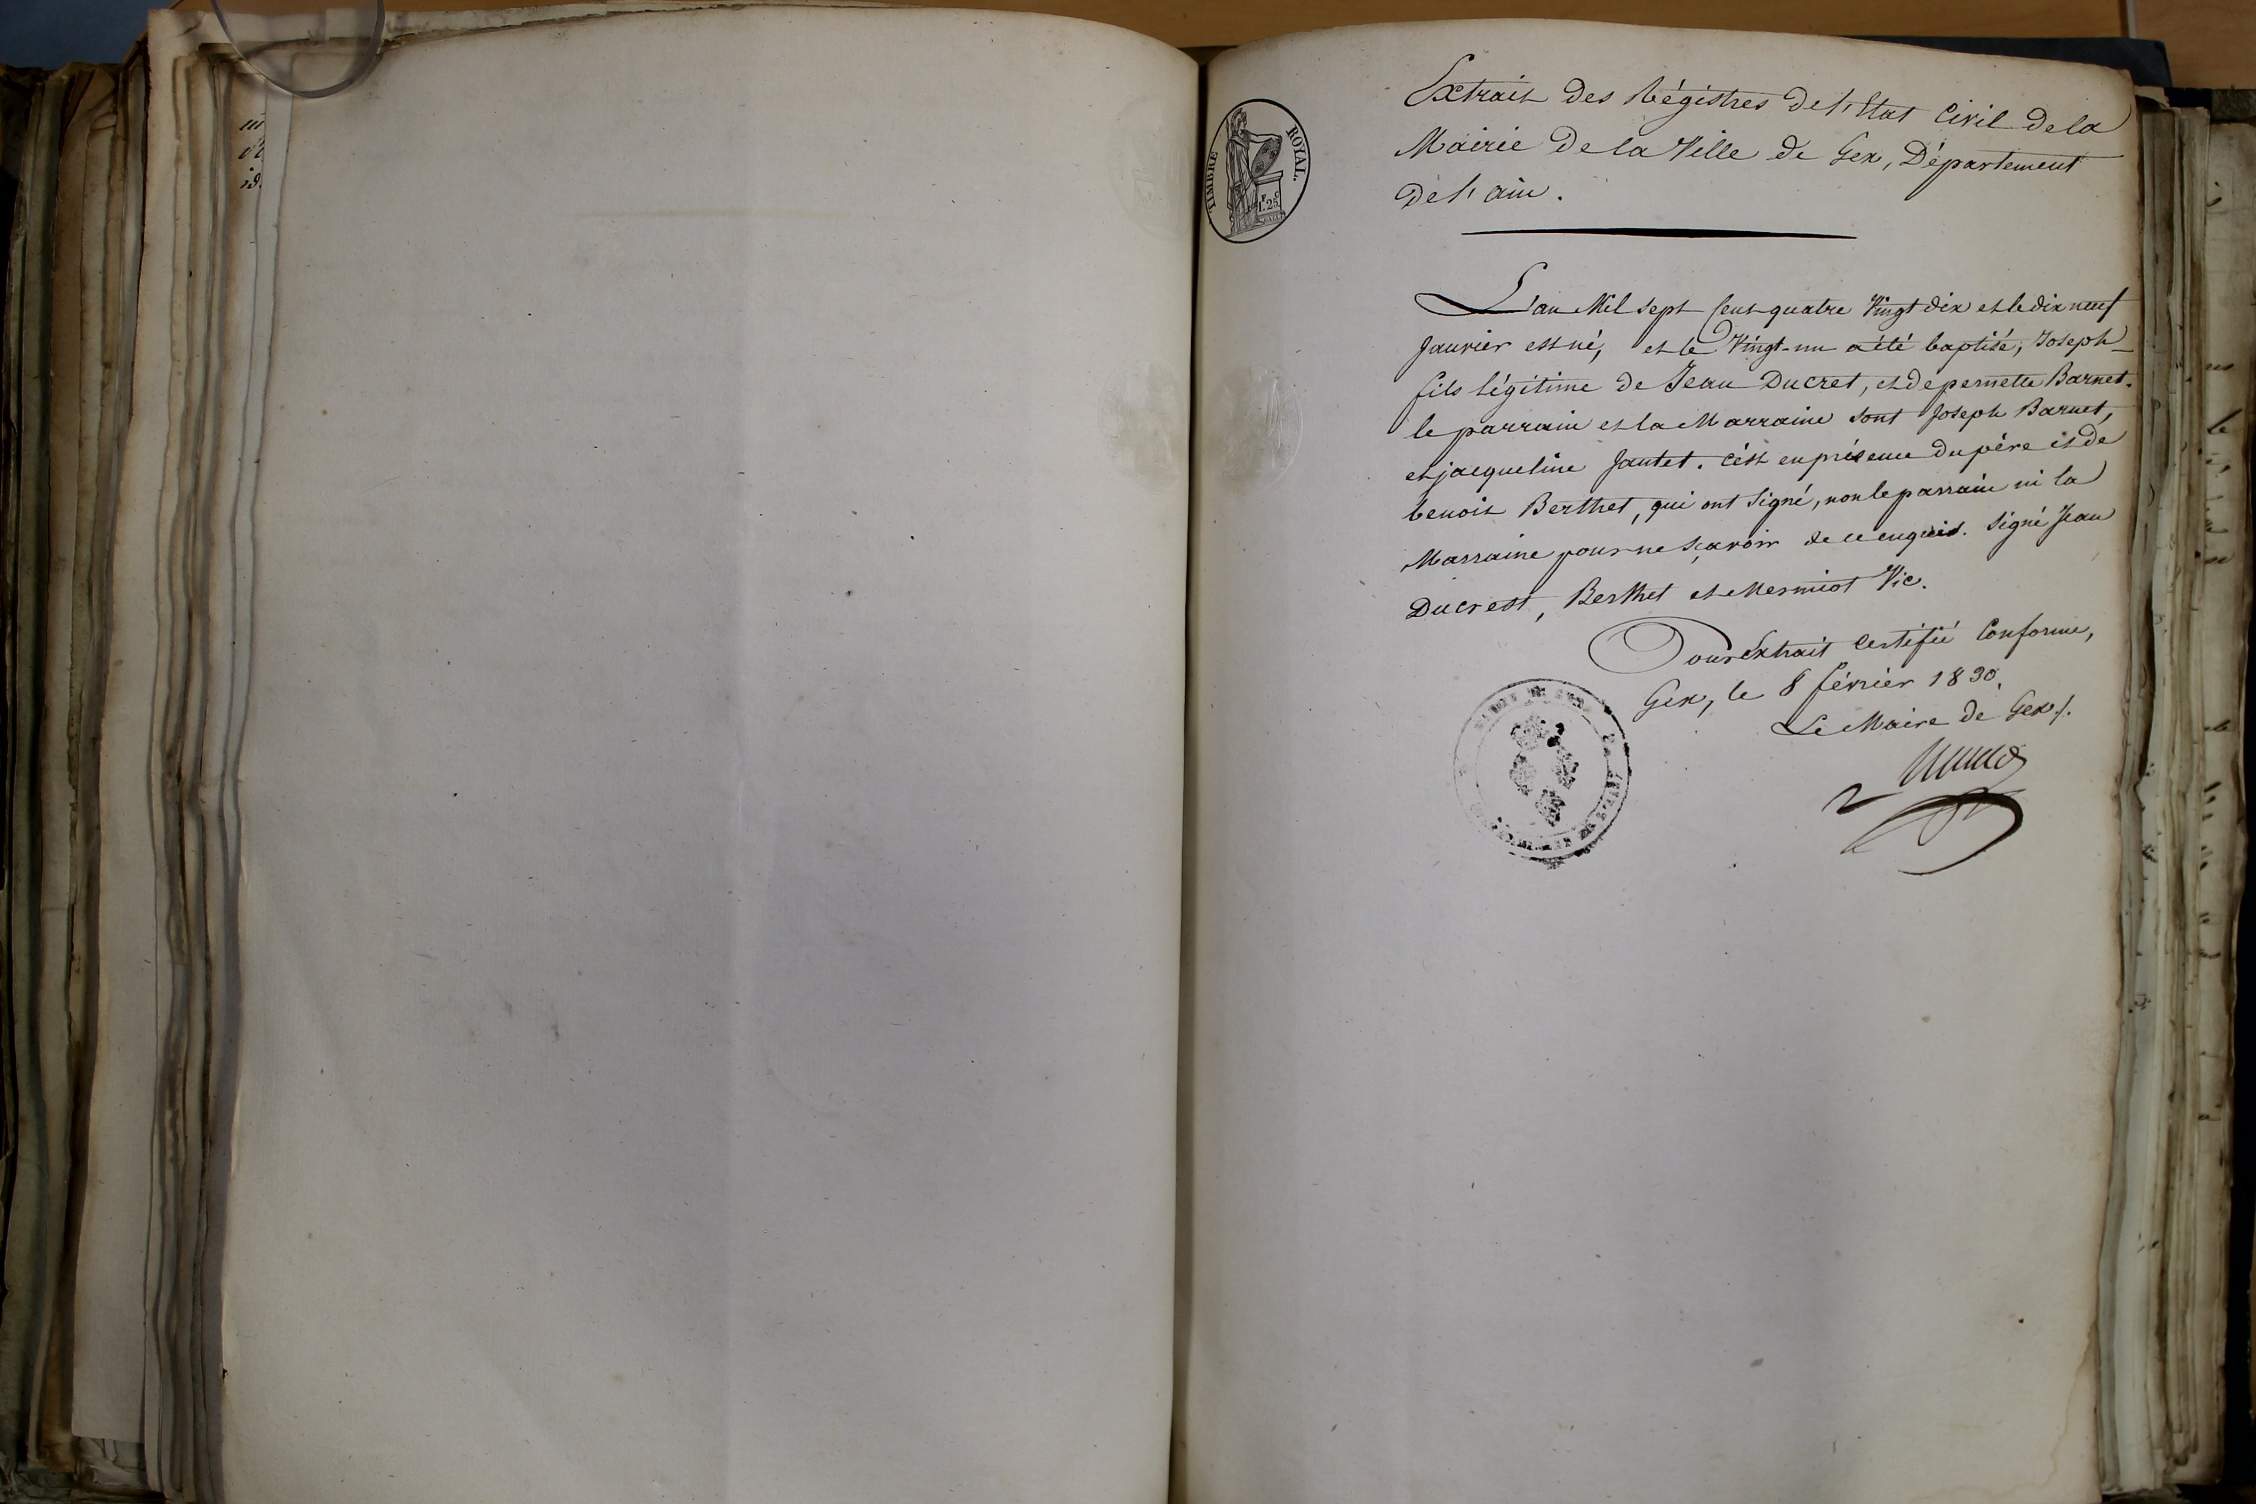 TIMBRE ROYAL.
1.25
Extrait des Régistres de l'Etat Civil de la
Mairie de la Ville de Gex, Département
de l'ain.
L'an Mil sept Cent quatre Vingt dix et le dix neuf
Janvier est né, et le Vingt-un a été baptisé, Joseph
fils légitime de Jean Ducret, et de pernette Barnet.
le parrain et la Marraine sont Joseph Barnet,
et jacqueline Jantet. c'est en présence du père et de
benoit Berthet, qui ont signé, non le parrain ni la
Marraine pour ne sçavoir de ce enquis. signé Jean
Ducrest, Berthet et Mermiot Vic.
Pour Extrait certifié Conforme,
Gex, le 8 février 1830.
Le Maire de Gex/.